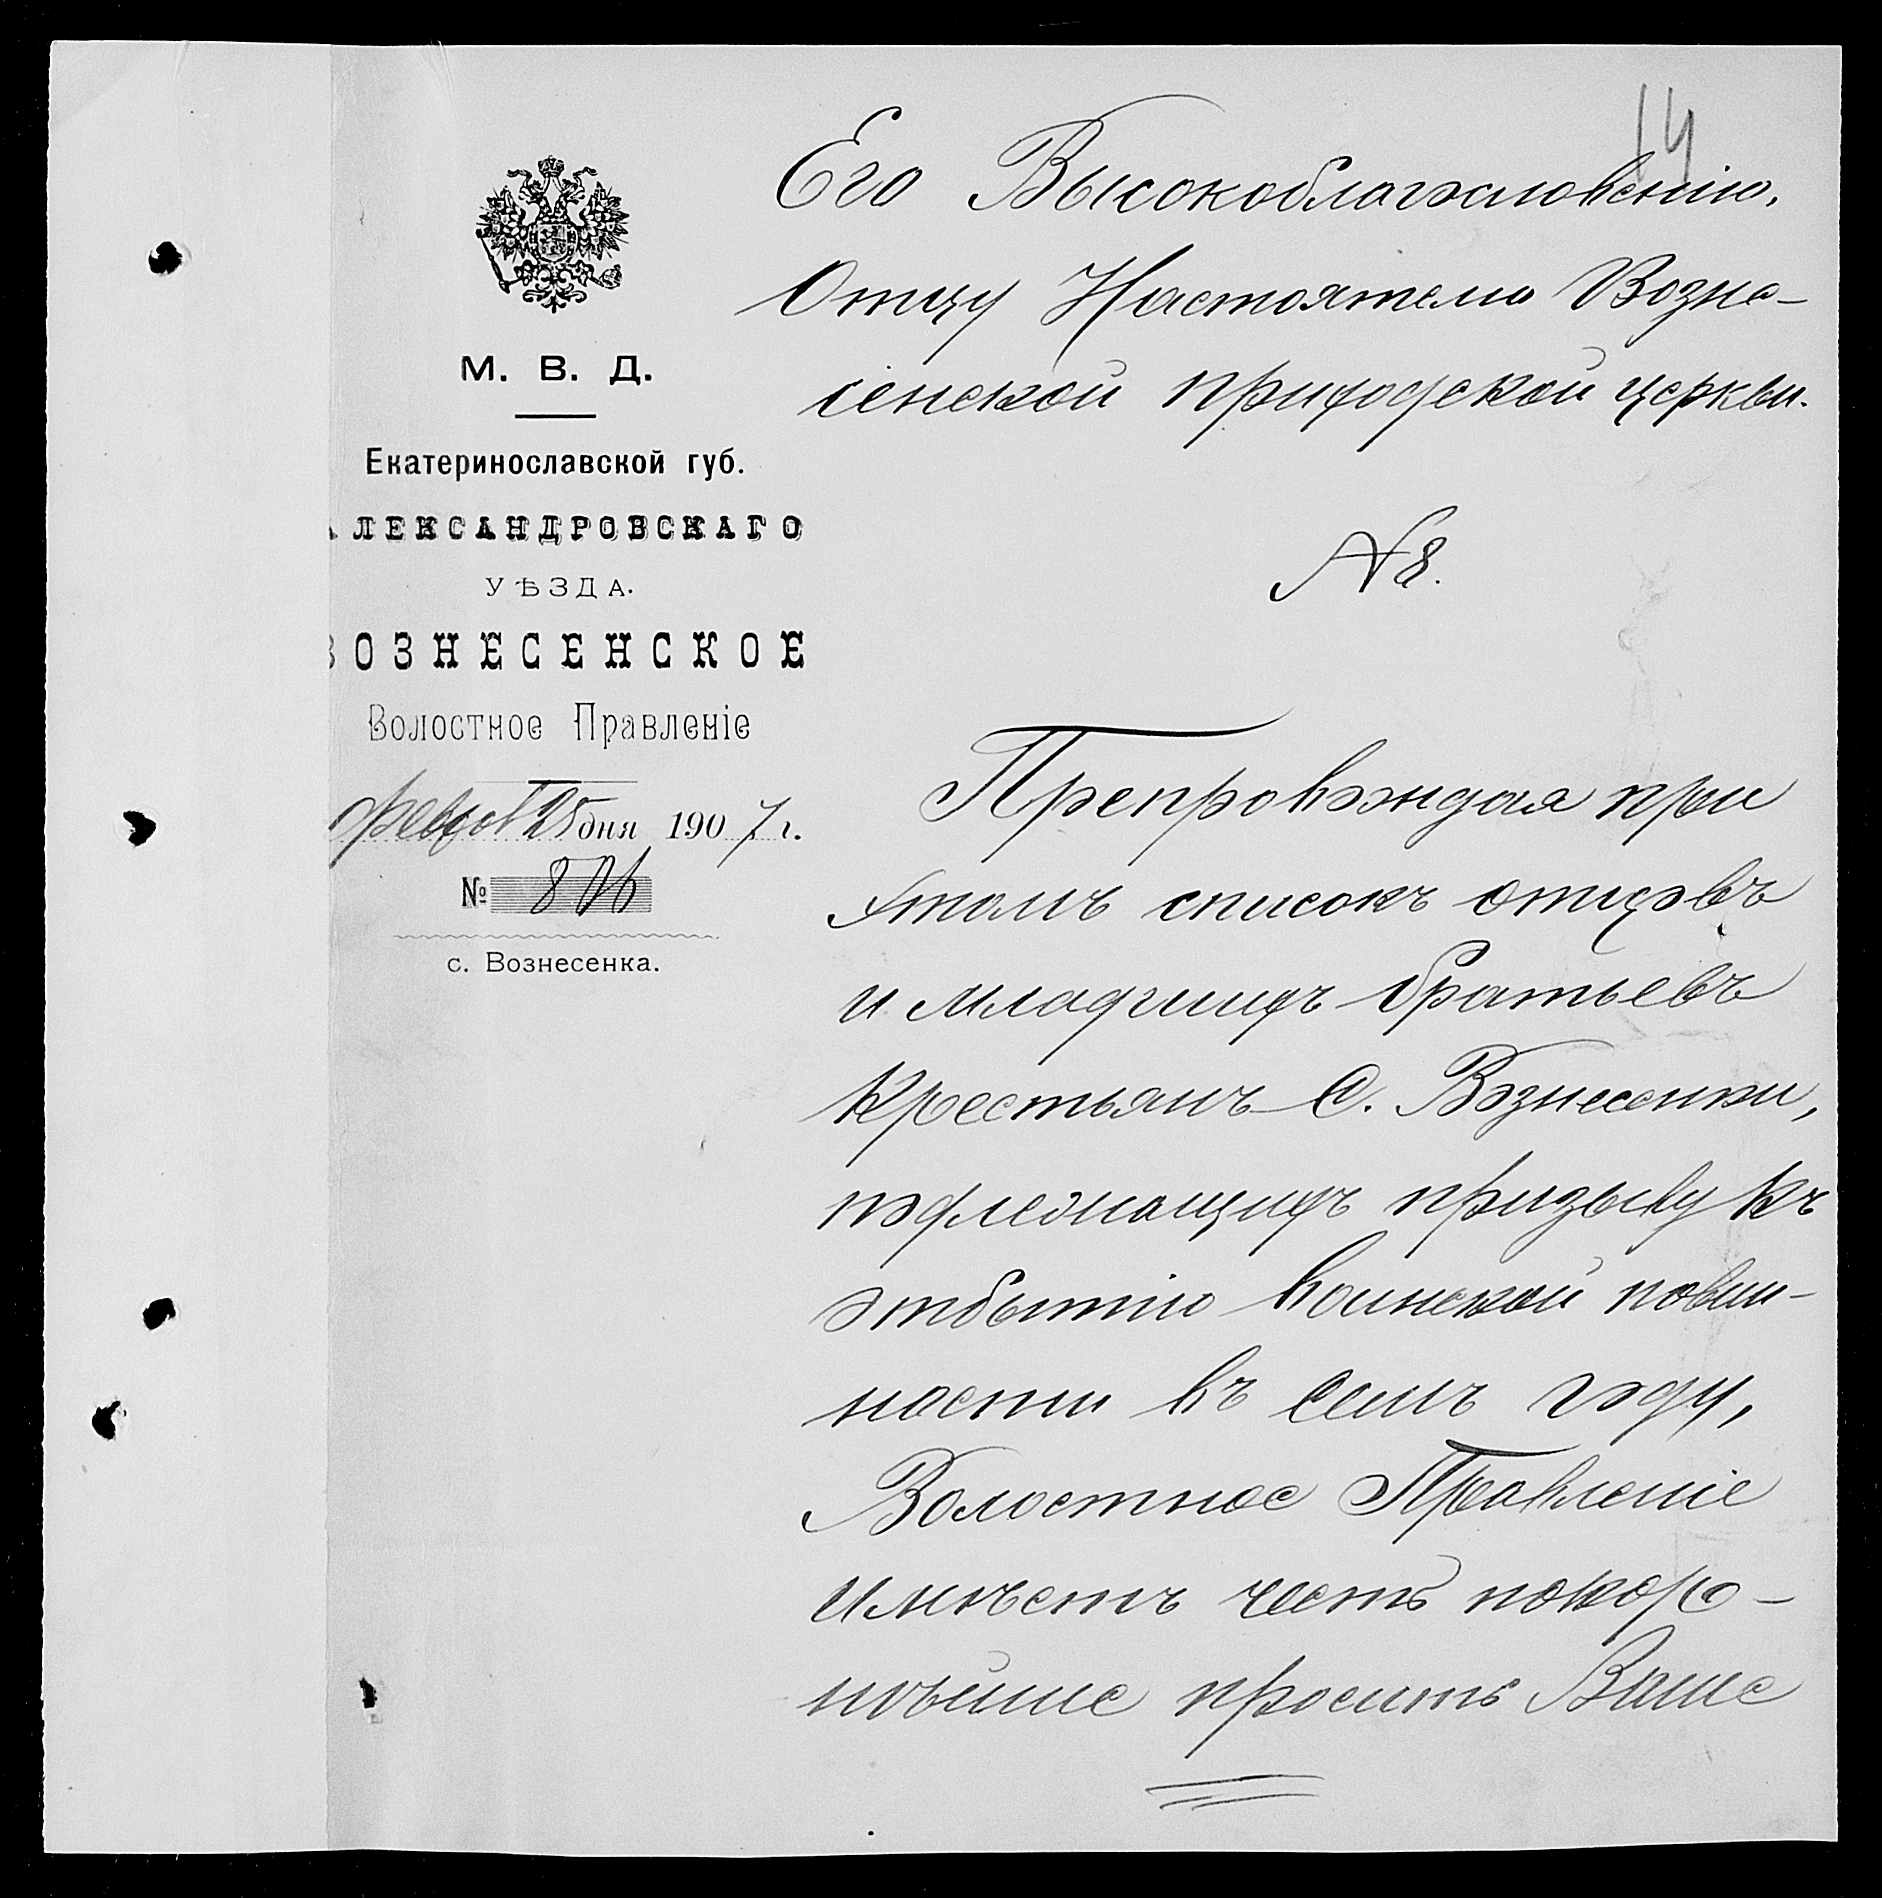 14
М. В. Д.
Екатеринославской губ.
АЛЕКСАНДРОВСКАГО
УѢЗДА.
ВОЗНЕСЕНСКОЕ
Волостное Правленіе
25 дня 1907 г.
№ 806
с. Вознесенка.
Его Высокоблагословенію,
Отцу Настоятелю Возне-
сенской приходской церкви.
№ 8.
Препровождая при
этомъ списокъ отцовъ
и младшихъ братьевъ
крестьянъ с. Вознесенки,
подлежащихъ призыву къ
отбытію воинской повин-
ности въ семъ году,
Волостное Правленіе
имѣетъ честь покор-
нѣйше просить Ваше